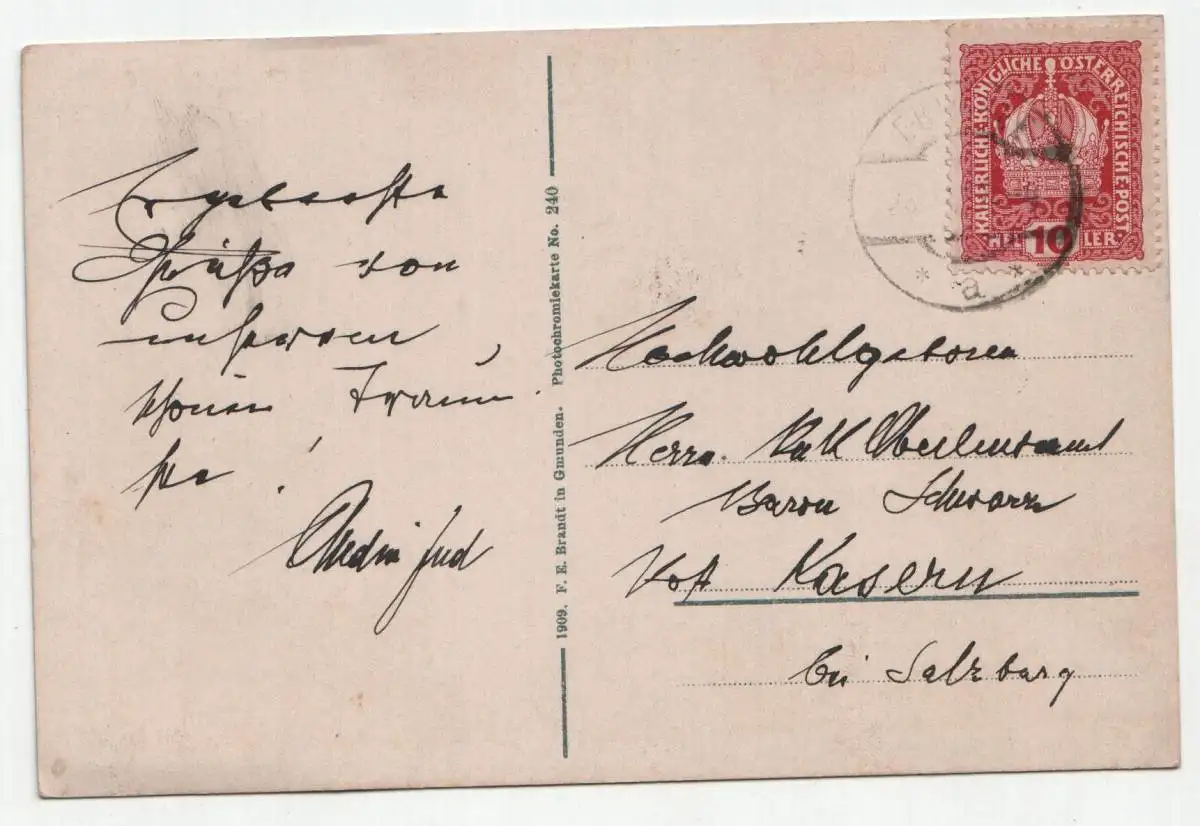 Ergebenste
Grüße von
unserem
schönen
!
1909. F. E. Brandt in Gmunden. Photochromiekarte No. 240
KAISERLICHE·KÖNIGLICHE ÖSTERREICHISCHE·POST·
10
LER
a
Hochwohlgeboren
Herrn
Baron Schwarz
Post Kasern
bei Salzburg